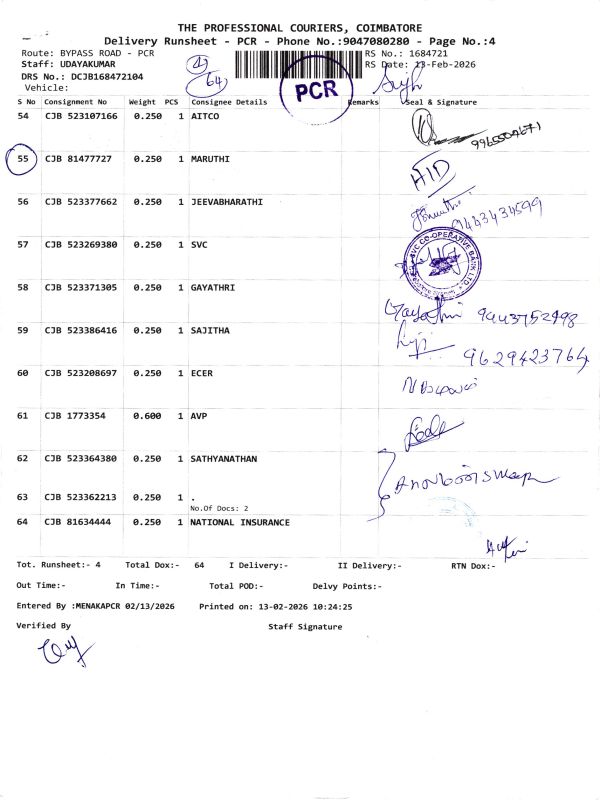 THE PROFESSIONAL COURIERS, COIMBATORE
Delivery Runsheet - PCR - Phone No.:9047080280 - Page No.:4
Route: BYPASS ROAD - PCR RS No.: 1684721
Staff: UDAYAKUMAR 4 RS Date: 13-Feb-2026
DRS No.: DCJB168472104 64 PCR
Vehicle:
S No Consignment No Weight PCS Consignee Details Remarks Seal & Signature
54 CJB 523107166 0.250 1 AITCO
55 CJB 81477727 0.250 1 MARUTHI
HID
56 CJB 523377662 0.250 1 JEEVABHARATHI
9443434599
57 CJB 523269380 0.250 1 SVC
SVC CO-OPERATIVE BANK LTD.
58 CJB 523371305 0.250 1 GAYATHRI
Gayathri 9443752498
59 CJB 523386416 0.250 1 SAJITHA
9629423764
60 CJB 523208697 0.250 1 ECER
61 CJB 1773354 0.600 1 AVP
62 CJB 523364380 0.250 1 SATHYANATHAN
63 CJB 523362213 0.250 1 .
No.Of Docs: 2
64 CJB 81634444 0.250 1 NATIONAL INSURANCE
Tot. Runsheet:- 4 Total Dox:- 64 I Delivery:- II Delivery:- RTN Dox:-
Out Time:- In Time:- Total POD:- Delvy Points:-
Entered By :MENAKAPCR 02/13/2026 Printed on: 13-02-2026 10:24:25
Verified By Staff Signature